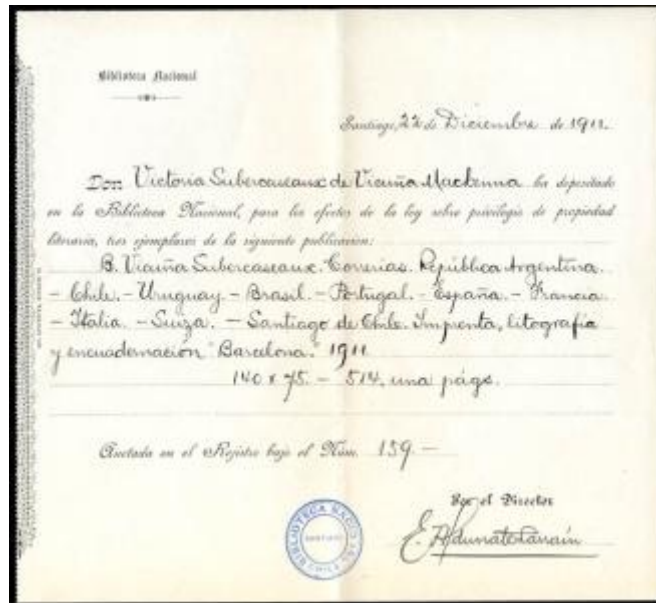 Biblioteca Nacional
Santiago, 22 de Diciembre de 1911.
Don Victoria Subercaseaux de Vicuña Mackenna ha depositado
en la Biblioteca Nacional, para los efectos de la ley sobre privilegio de propiedad
literaria, tres ejemplares de la siguiente publicacion:
B. Vicuña Subercaseaux. Correrías. República Argentina.
- Chile. - Uruguay. - Brasil. - Portugal. - España. - Francia.
- Italia. - Suiza. - Santiago de Chile. Imprenta, litografía
y encuadernación "Barcelona." 1911
140 x 75. - 514, una págs.
Anotada en el Rejistro bajo el Núm. 159 -
Por el Director
BIBLIOTECA NACIONAL
SANTIAGO
CHILE